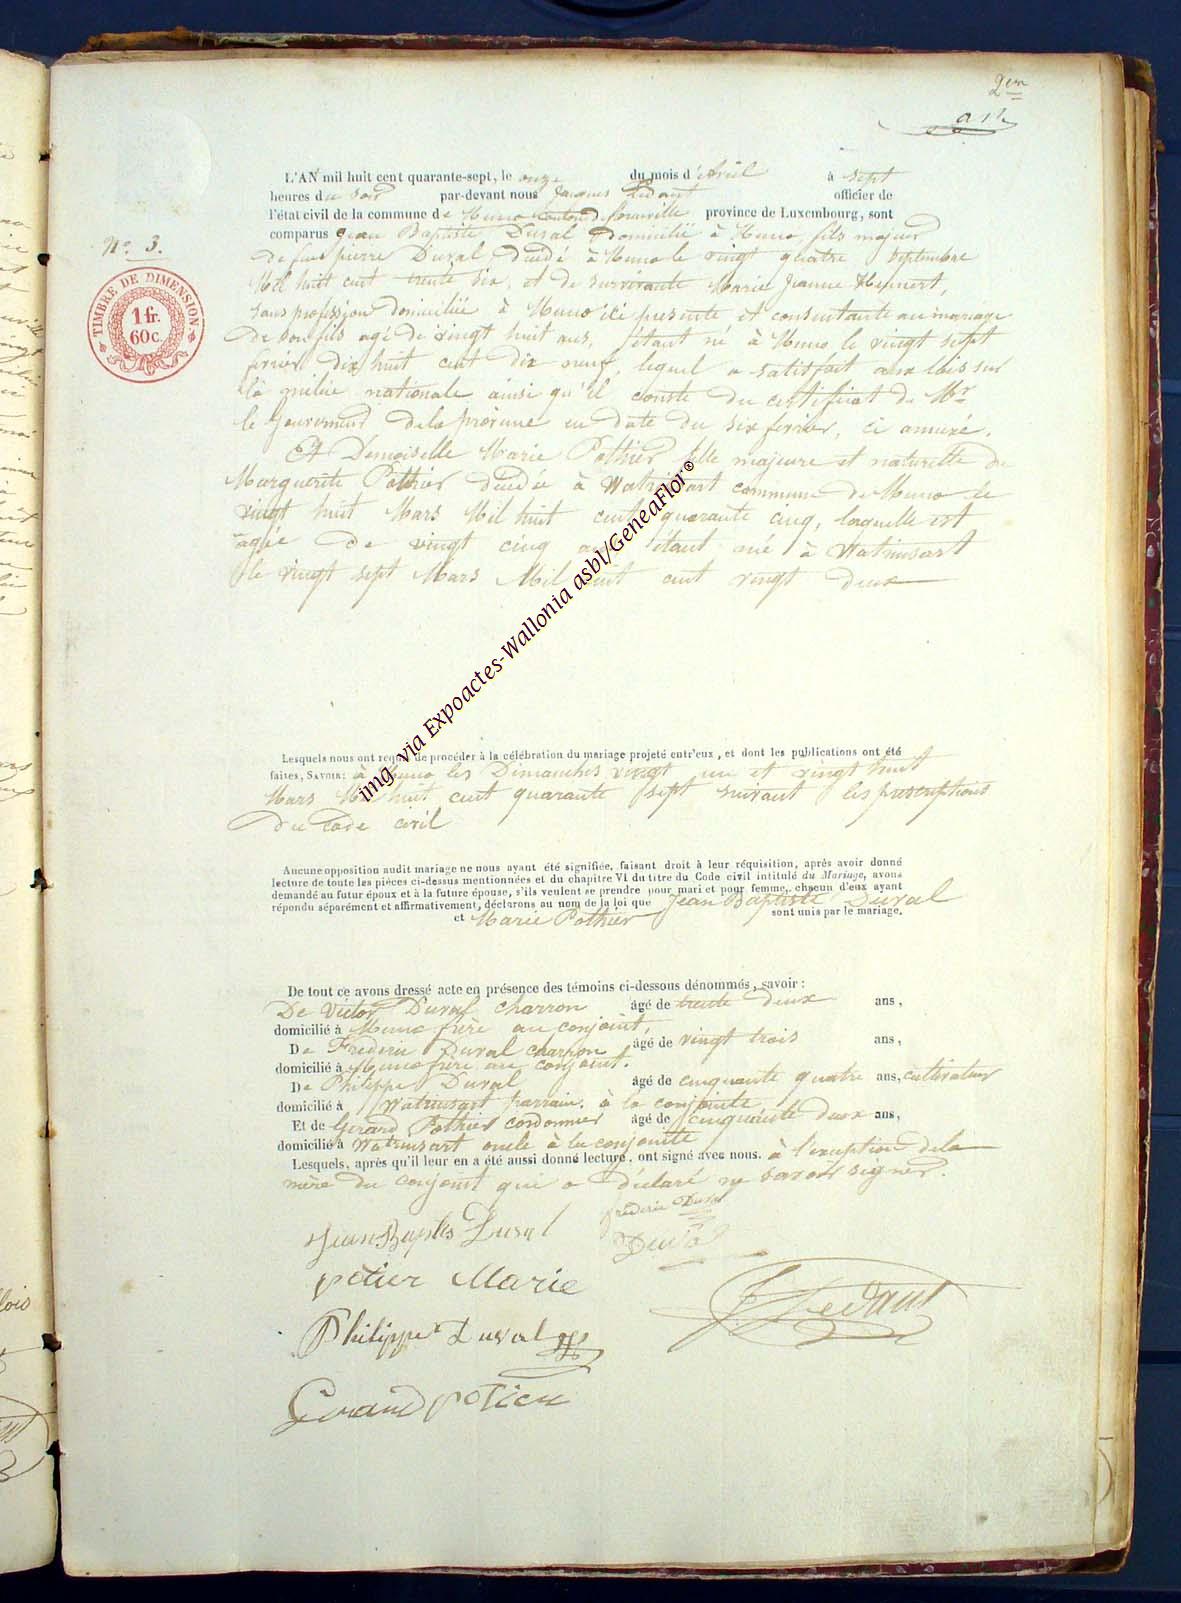 2em
L'AN mil huit cent quarante-sept, le onze du mois d'Avril à sept
heures du soir par-devant nous Jacques Ledant officier de
l'état civil de la commune de Muno Canton de florenville province de Luxembourg, sont
comparus Jean Baptiste Duval Domicilié à Muno fils majeur
N° 3.
de feu pierre Duval décédé à Muno le vingt quatre Septembre
Mil huit cent trente six, et de survivante Marie Jeanne
TIMBRE DE DIMENSION
1 fr.
60 c.
sans profession domiciliée à Muno ici présente et consentante au mariage
de son fils agé de vingt huit ans, étant né à Muno le vingt sept
fevrier dix huit cent dix neuf, lequel a satisfait aux lois sur
la milice nationale ainsi qu'il conste du certificat de Mr
le Gouverneur de la province en date du six fevrier, ci annexé.
Et Demoiselle Marie Pothier fille majeure et naturelle de
Marguerite Pothier décédée à Watrinsart commune de Muno le
vingt huit Mars Mil huit cent quarante cinq, laquelle est
agée de vingt cinq ans étant née à Watrinsart
le vingt sept Mars Mil huit cent vingt deux
img via Expoactes-Wallonia asbl/GeneaFlor®
Lesquels nous ont requis de procéder à la célébration du mariage projeté entr'eux, et dont les publications ont été
faites, SAVOIR: à Muno les Dimanches vingt un et vingt huit
Mars Mil huit cent quarante sept suivant les prescriptions
du code civil
Aucune opposition audit mariage ne nous ayant été signifiée, faisant droit à leur réquisition, après avoir donné
lecture de toute les pièces ci-dessus mentionnées et du chapitre VI du titre du Code civil intitulé du Mariage, avons
demandé au futur époux et à la future épouse, s'ils veulent se prendre pour mari et pour femme, chacun d'eux ayant
répondu séparément et affirmativement, déclarons au nom de la loi que Jean Baptiste Duval
et Marie Pothier sont unis par le mariage.
De tout ce avons dressé acte en présence des témoins ci-dessous dénommés, savoir:
De Victor Duval charron âgé de trente deux ans,
domicilié à Muno frère au conjoint,
De Frederic Duval charron âgé de vingt trois ans,
domicilié à Muno frère au conjoint.
De Philippe Duval âgé de cinquante quatre ans, cultivateur
domicilié à Watrinsart parrain à la conjointe
Et de Gerard Pothier cordonnier âgé de cinquante deux ans,
domicilié à Watrinsart oncle à la conjointe
Lesquels, après qu'il leur en a été aussi donné lecture, ont signé avec nous. à l'exception de la
mère du conjoint qui a déclaré ne savoir signer.
Jean Baptes Duval
frederic Duval
Duval
potier Marie
J. Ledant
Philippe Duval
Gerard potier